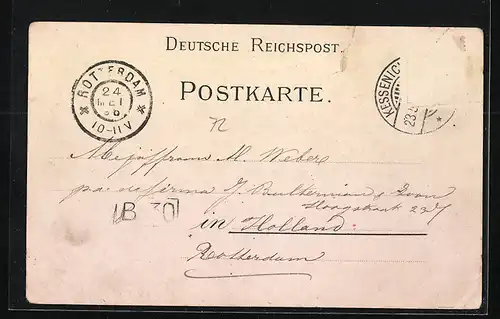 DEUTSCHE REICHSPOST.
POSTKARTE.
ROTTERDAM
24
MEI
10-11V
KESSENIC
23.5
n
Mejuffrouw M. Weber
pa de firma J. Bulterman & Zoon
Hoogstraat 237
B 30
in Holland
Rotterdam